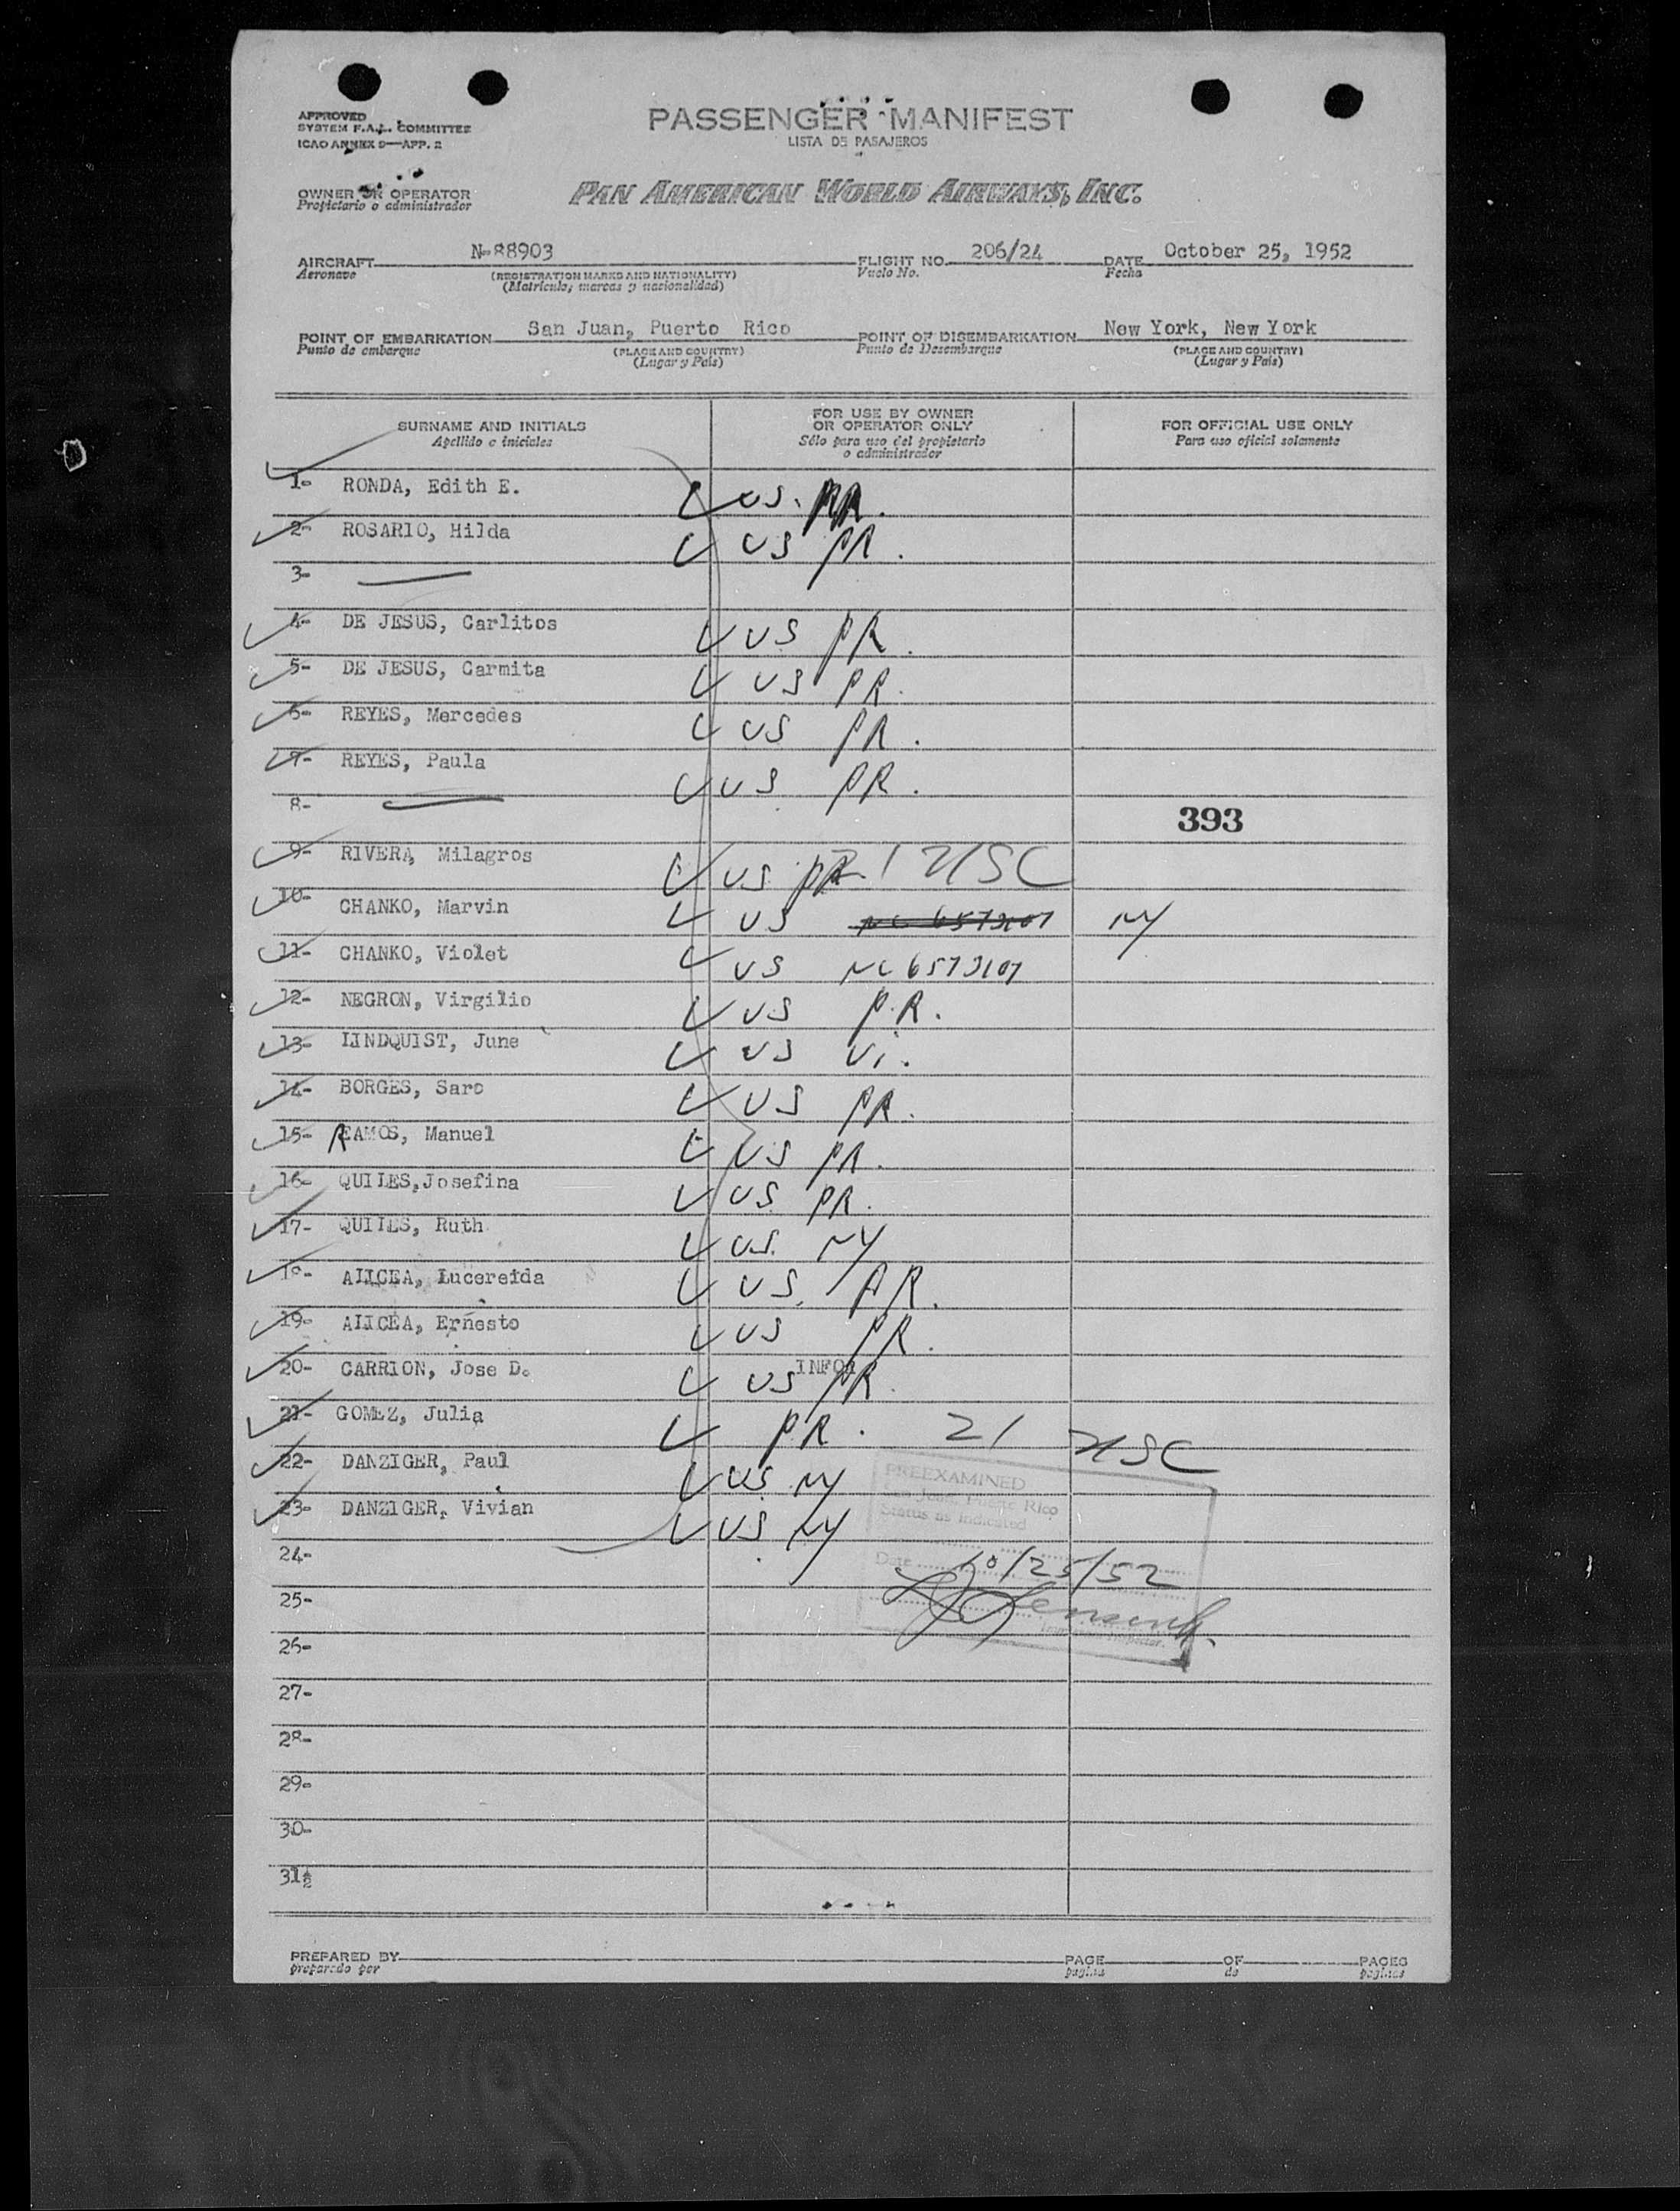 APPROVED
SYSTEM F.A.L. COMMITTEE
ICAO ANNEX 9—APP. 2
PASSENGER MANIFEST
LISTA DE PASAJEROS
OWNER OR OPERATOR
Propietario o administrador
PAN AMERICAN WORLD AIRWAYS, INC.
AIRCRAFT N-88903 FLIGHT NO. 206/24 DATE October 25, 1952
Aeronave (REGISTRATION MARKS AND NATIONALITY) Vuelo No. Fecha
(Matricula, marcas y nacionalidad)
POINT OF EMBARKATION San Juan, Puerto Rico POINT OF DISEMBARKATION New York, New York
Punto de embarque (PLACE AND COUNTRY) Punto de Desembarque (PLACE AND COUNTRY)
(Lugar y País) (Lugar y País)
SURNAME AND INITIALS FOR USE BY OWNER OR OPERATOR ONLY FOR OFFICIAL USE ONLY
Apellido e iniciales Sólo para uso del propietario o administrador Para uso oficial solamente
1- RONDA, Edith E. US. PR.
2- ROSARIO, Hilda US PR.
3-
4- DE JESUS, Carlitos US PR.
5- DE JESUS, Carmita US PR.
6- REYES, Mercedes US PR.
7- REYES, Paula US PR.
8-
393
9- RIVERA, Milagros US PR 21 USC
10- CHANKO, Marvin US NY
11- CHANKO, Violet US NC 6573107
12- NEGRON, Virgilio US P.R.
13- LINDQUIST, June US VI.
14- BORGES, Saro US PR.
15- RAMOS, Manuel US PR.
16- QUILES,Josefina US PR.
17- QUILES, Ruth US. NY
18- ALICEA, Lucereida US. PR.
19- ALICEA, Ernesto US PR.
20- CARRION, Jose D. INFO US PR.
21- GOMEZ, Julia PR. 21 USC
22- DANZIGER, Paul US NY
23- DANZIGER, Vivian US NY
PREEXAMINED
San Juan, Puerto Rico
Status as Indicated
24-
Date 10/25/52
25-
Immigrant Inspector.
26-
27-
28-
29-
30-
31-
PREPARED BY PAGE OF PAGES
preparado por pagina de paginas